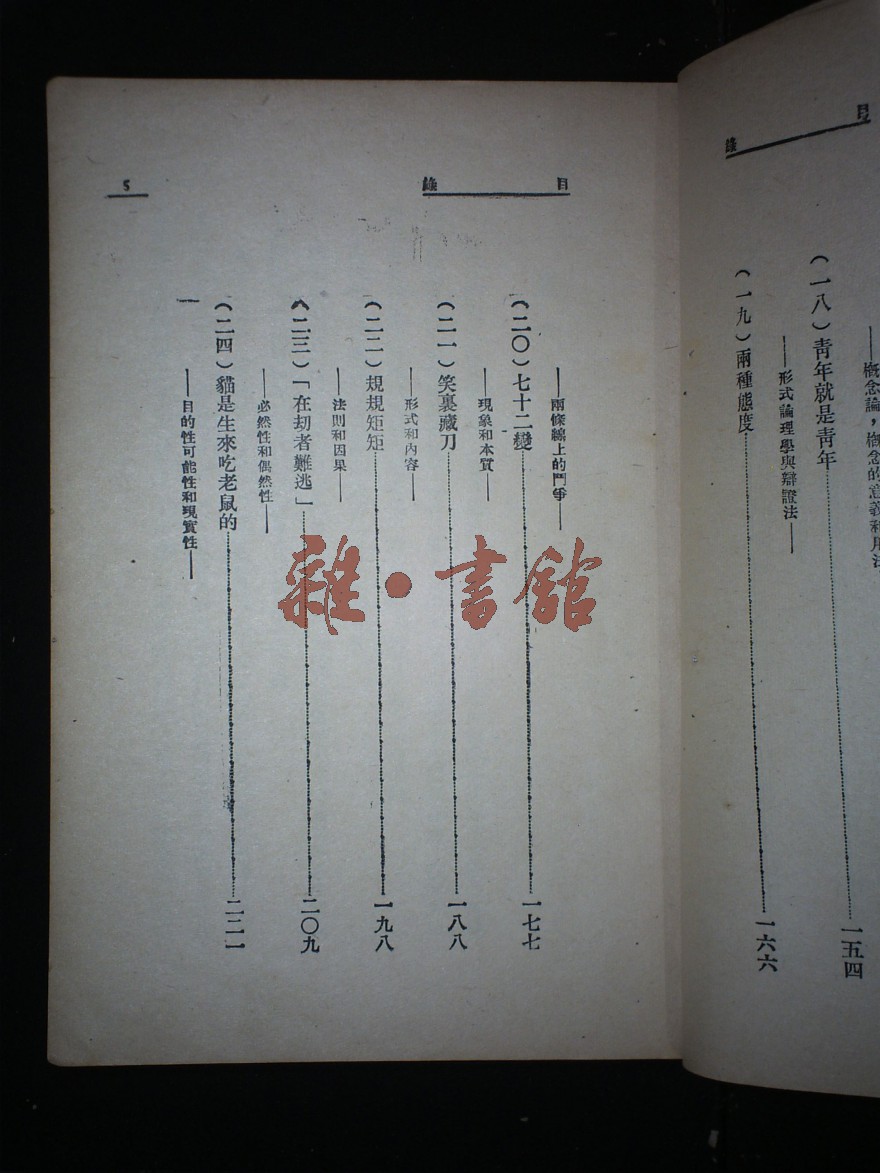 目錄
——概念論，概念的意義和用法
（一八）青年就是青年……………一五四
——形式論理學與辯證法——
（一九）兩種態度……………一六六
目錄
5
——兩條線上的鬥爭——
（二〇）七十二變……………一七七
——現象和本質——
（二一）笑裏藏刀……………一八八
——形式和內容——
（二二）規規矩矩……………一九八
——法則和因果——
（二三）「在劫者難逃」……………二〇九
——必然性和偶然性——
（二四）貓是生來吃老鼠的……………二二一
——目的性可能性和現實性——
雜·書館